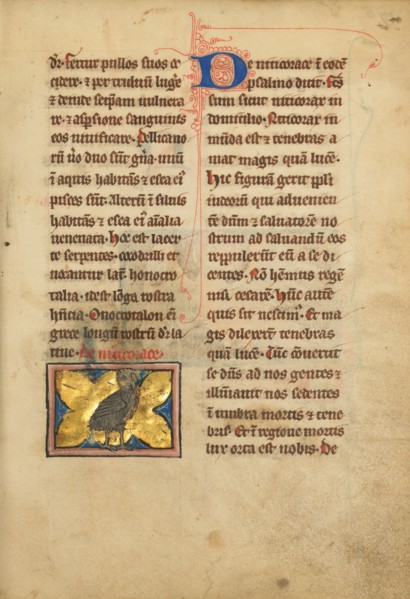 dr̄. Fertur pullos suos oc
cidere. ⁊ per triduū luge
⁊ deinde seip̄am uulnera
re. ⁊ asp̄sione sanguinis
eos uiuificare. Pellicano
rū ūo duo sūt gn̄a. unū
ī aquis habitās ⁊ esca eı᷒
pisces sūt. Alterū ī siluis
habitās ⁊ esca eı᷒ aīalia
uenenata. Hoc est lacer
te serpentes. cocodrilli et
uocantur lat̄. honocro
talia. id est lōga rostra
hn̄tia. Onocrotalon eī
grece longū rostrū dr̄ la
tine. De niticorace.
De niticorace ī eodē
psalmo dicit. Fc̄s
sum sicut niticorax in
domicilio. Niticorax in
mūda est ⁊ tenebras a
mat magis quā lucē.
Hic figurā gerit pp̄li
iudeorū qui aduenien
tē dn̄m ⁊ saluatorē no
strum ad saluandū eos
reppulerūt eū a se di
centes. Nō hēmus regē
nisi cesarē. Hūc autē
quis sit nescim᷒. Et ma
gis dilexerūt tenebras
quā lucē. Tūc cōuertit
se dn̄s ad nos gentes ⁊
illuminauit nos sedentes
ī umbra mortis ⁊ tene
bris. Et ī regione mortis
lux orta est nobis. De